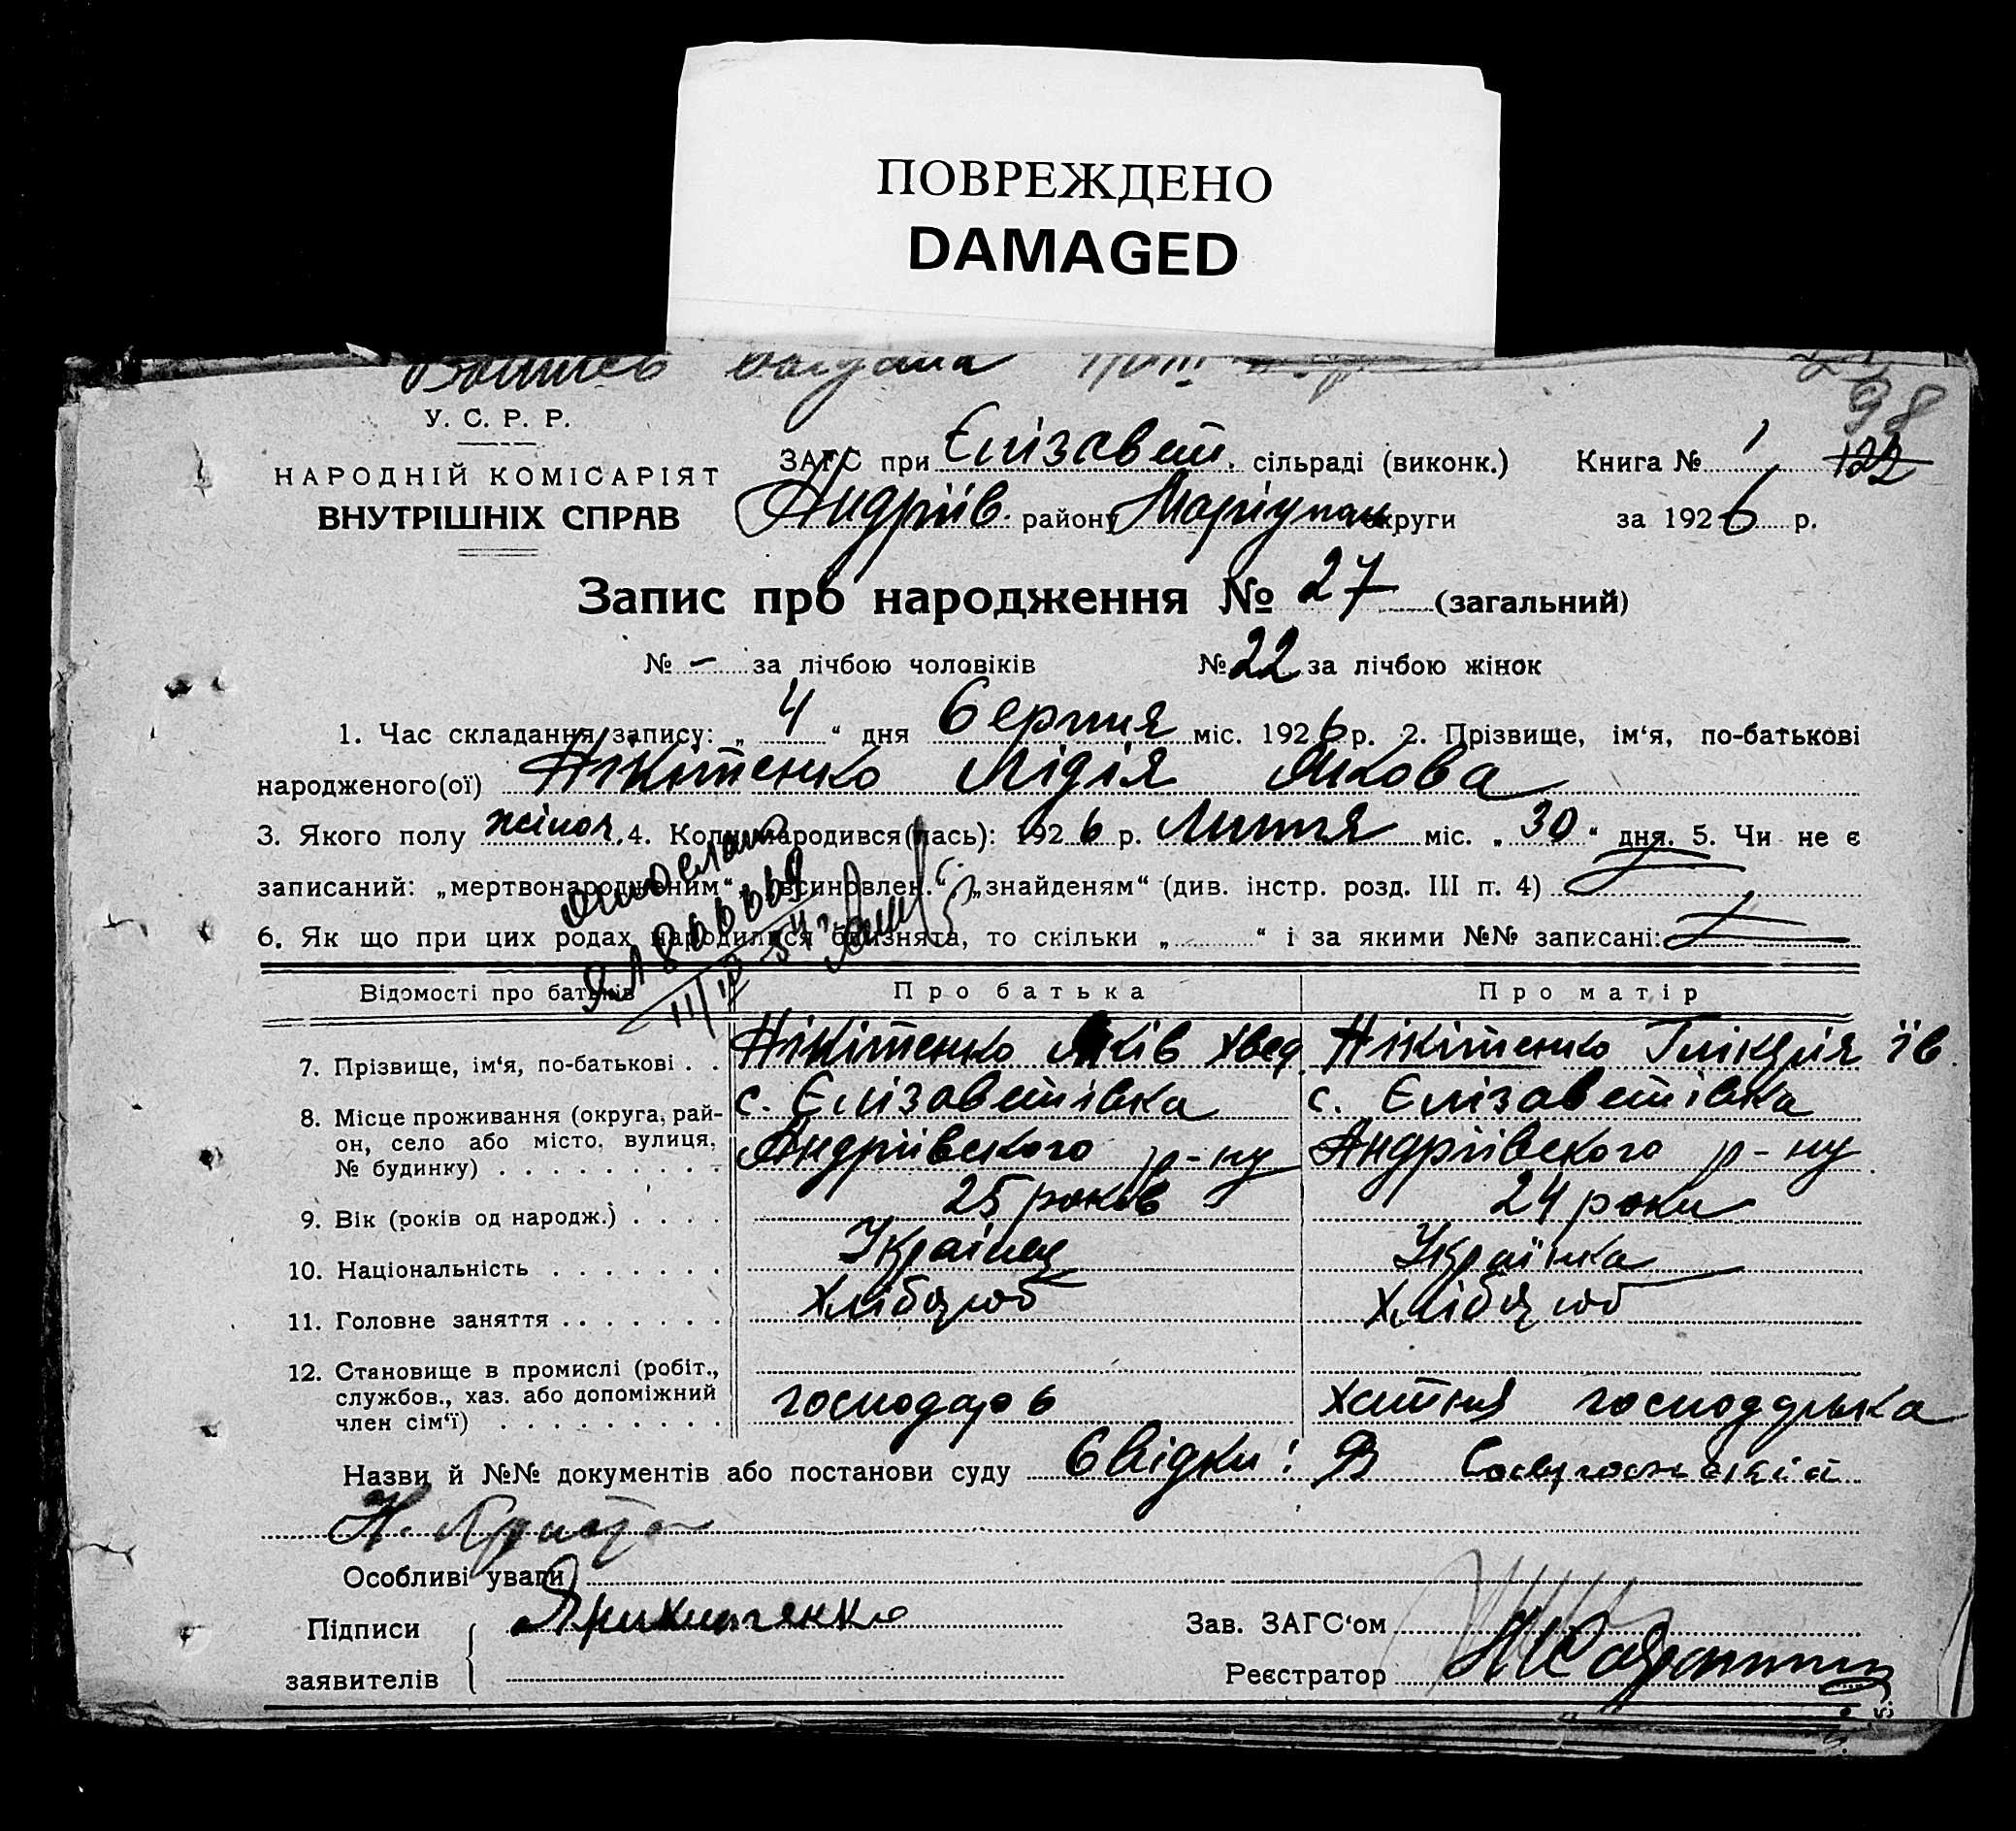 ПОВРЕЖДЕНО
DAMAGED
98
У. С. Р. Р.
ЗАГС при Єлізавет. сільраді (виконк.) Книга № 1 122
НАРОДНІЙ КОМІСАРІЯТ
ВНУТРІШНІХ СПРАВ
Андріїв. району Маріупол округи за 1926 р.
Запис про народження № 27 (загальний)
№ - за лічбою чоловіків № 22 за лічбою жінок
1. Час складання запису: „ 4 “ дня Серпня міс. 1926 р. 2. Прізвище, ім‘я, по-батькові
народженого(ої) Нікітенко Лідія Якова
3. Якого полу жіноч. 4. Коли народився(лась): 1926 р. Липня міс. „ 30 “ дня. 5. Чи не є
записаний: „мертвонародженим“, „всиновлен.“, „знайденям“ (див. інстр. розд. III п. 4)
6. Як що при цих родах народилися близнята, то скільки „ “ і за якими №№ записані:
Відомості про батьків Про батька Про матір
7. Прізвище, ім‘я, по-батькові . . Нікітенко Яків Хвед. Нікітенко Глікерія Їв.
8. Місце проживання (округа, рай- с. Єлізаветівка с. Єлізаветівка
он, село або місто, вулиця, Андріївского р-ну Андріївского р-ну
№ будинку) . . . . . . . . .
9. Вік (років од народж.) . . . . 25 років 24 роки
10. Національність . . . . . . . Українец Українка
11. Головне заняття . . . . . . . Хлібороб Хлібороб
12. Становище в промислі (робіт.,
службов., хаз. або допоміжний господарь хатня господарька
член сім‘ї) . . . . . . . . .
Назви й №№ документів або постанови суду Свідки: В
Особливі уваги
Підписи Зав. ЗАГС‘ом
заявителів Реєстратор